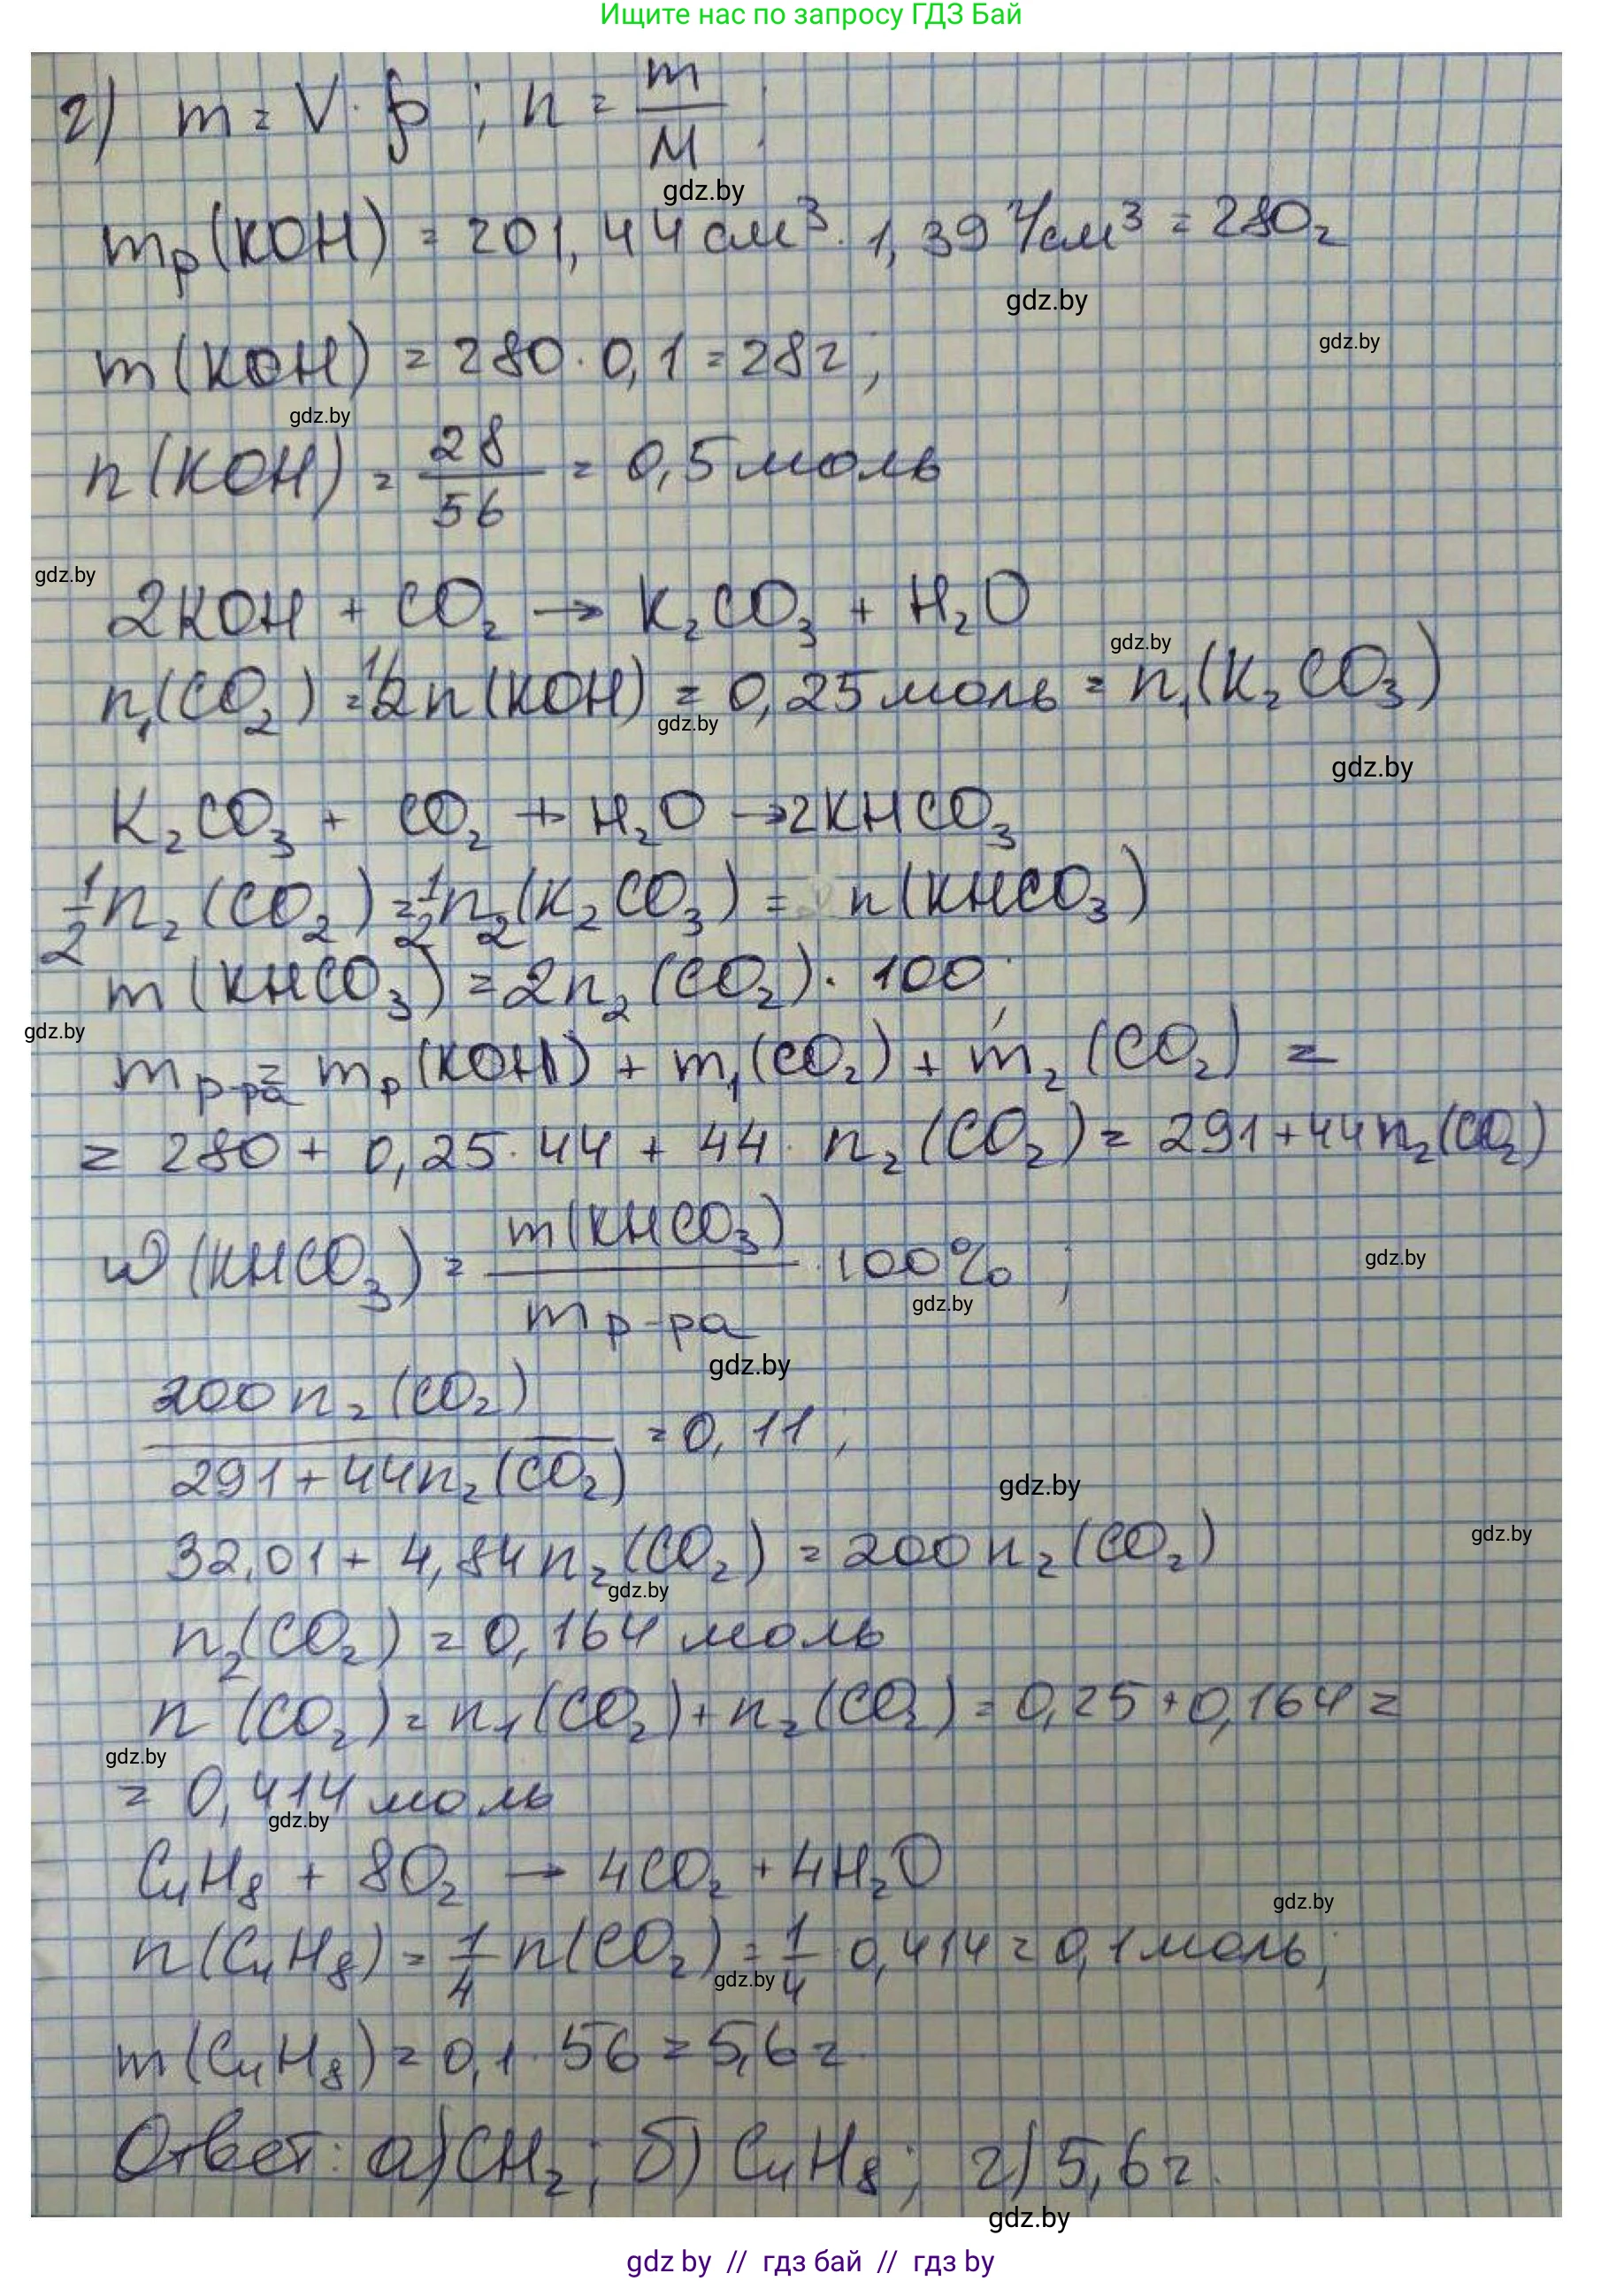 Ищите нас по запросу ГДЗ Бай
г) m = V · ρ ; n = m/M ;
gdz.by
mр(KOH) = 201,44 см³ · 1,39 г/см³ = 280г
gdz.by
gdz.by
m(KOH) = 280 · 0,1 = 28г;
gdz.by
n(KOH) = 28/56 = 0,5 моль
gdz.by
2KOH + CO₂ → K₂CO₃ + H₂O
gdz.by
n₁(CO₂) = 1/2 n(KOH) = 0,25 моль = n₁(K₂CO₃)
gdz.by
gdz.by
K₂CO₃ + CO₂ + H₂O → 2KHCO₃
1/2 n₂(CO₂) = 1/2 n₂(K₂CO₃) = n(KHCO₃)
m(KHCO₃) = 2n₂(CO₂) · 100;
gdz.by
mр-ра = mр(KOH) + m₁(CO₂) + m₂(CO₂) =
= 280 + 0,25 · 44 + 44 · n₂(CO₂) = 291 + 44n₂(CO₂)
ω(KHCO₃) = m(KHCO₃)/mр-ра · 100% ;
gdz.by
gdz.by
gdz.by
200n₂(CO₂)/291 + 44n₂(CO₂) = 0,11 ;
gdz.by
32,01 + 4,84n₂(CO₂) = 200n₂(CO₂)
gdz.by
gdz.by
n₂(CO₂) = 0,164 моль
n(CO₂) = n₁(CO₂) + n₂(CO₂) = 0,25 + 0,164 =
gdz.by
= 0,414 моль
gdz.by
C₄H₈ + 8O₂ → 4CO₂ + 4H₂O
gdz.by
n(C₄H₈) = 1/4 n(CO₂) = 1/4 · 0,414 = 0,1 моль;
gdz.by
m(C₄H₈) = 0,1 · 56 = 5,6г.
Ответ: а) CH₂; б) C₄H₈; г) 5,6г.
gdz.by
gdz by // гдз бай // гдз by